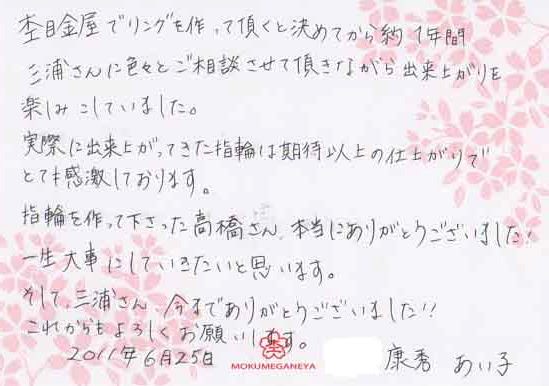 杢目金屋でリングを作って頂くと決めてから約1年間
三浦さんに色々とご相談させて頂きながら出来上がりを
楽しみにしていました。
実際に出来上がってきた指輪は期待以上の仕上がりで
とても感激しております。
指輪を作って下さった高橋さん、本当にありがとうございました!
一生大事にしていきたいと思います。
そして、三浦さん、今までありがとうございました!!
これからもよろしくお願いします。
2011年6月25日
MOKUMEGANEYA
康秀 あい子